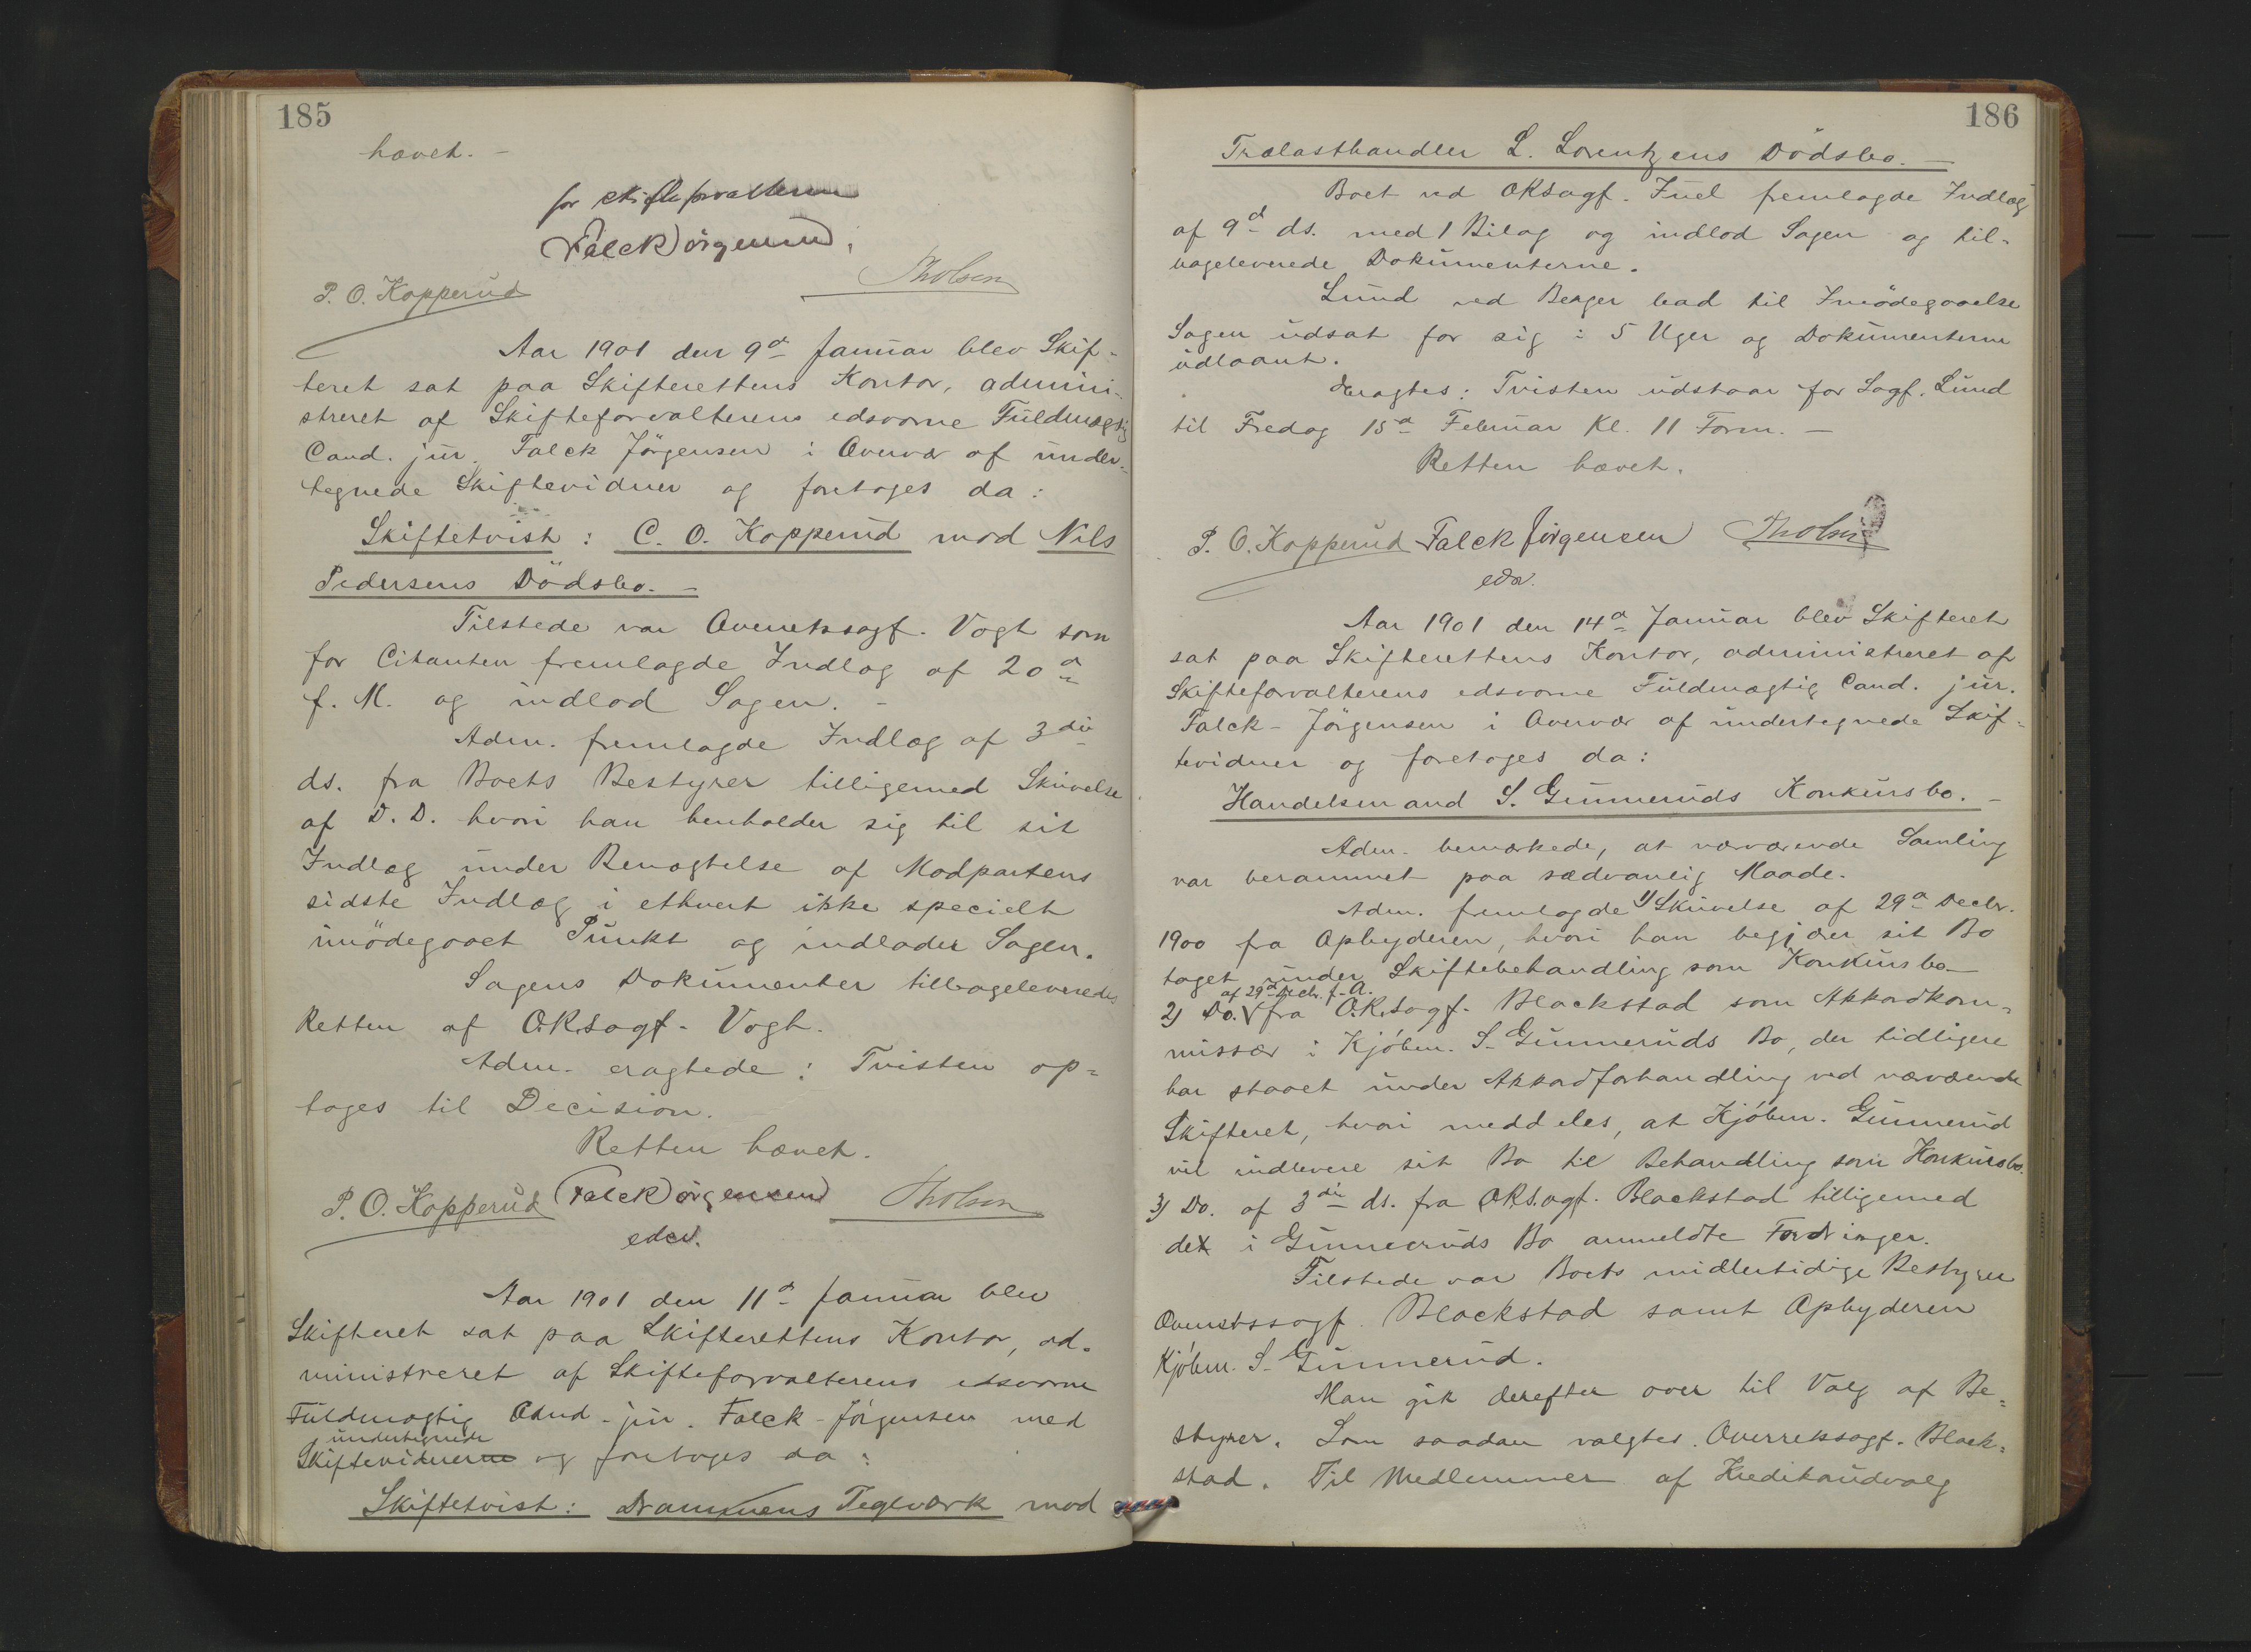 185
hævet. –
for skifteforvalteren
Falck Jørgensen,
P. O. Kopperud
Tholsen
Aar 1901 den 9d Januar blev Skif-
teret sat paa Skifterettens Kontor, admini-
streret af Skifteforvalterens edsvorne Fuldmægtig
Cand. jur. Falck Jörgensen i Overvær af under-
tegnede Skiftevidner og foretoges da:
Skiftetvist: C. O. Kopperud mod Nils
Pedersens Dödsbo. –
Tilstede var Overretssagf. Vogt som
for Citanten fremlagde Indlæg af 20d
f. M. og indlod Sagen. –
Adm. fremlagde Indlæg af 3die
ds. fra Boets Bestyrer tilligemed Skrivelse
af D. D. hvori han henholder sig til sit
Indlæg under Benægtelse af Modpartens
sidste Indlæg i ethvert ikke specielt
imödegaaet Punkt og indlader Sagen.
Sagens Dokumenter tilbageleveredes
Retten af O.R.Sagf. Vogt.
Adm. eragtede: Tvisten op-
tages til Decision.
Retten hævet.
P. O. Kopperud Falck Jørgensen Tholsen
edsv.
Aar 1901 den 11d Januar blev
Skifteret sat paa Skifterettens Kontor, ad-
ministreret af Skifteforvalterens edsvorne
Fuldmægtig Cand. jur. Falck-Jörgensen med
undertegnede
Skiftevidnerne og foretoges da:
Skiftetvist: Drammens Teglværk mod
186
Trælasthandler L. Lorentzens Dödsbo. –
Boet ved ORSagf. Juel fremlagde Indlæg
af 9d ds. med 1 Bilag og indlod Sagen og til-
bageleverede Dokumenterne.
Lund ved Berger bad til Imödegaaelse
Sagen udsat for sig i 5 Uger og Dokumenterne
udlaant.
Eragtes: Tvisten udstaar for Sagf. Lund
til Fredag 15d Februar Kl. 11 Form. –
Retten hævet.
P. O. Kopperud Falck Jørgensen Tholsen
edsv.
Aar 1901 den 14d Januar blev Skifteret
sat paa Skifterettens Kontor, administreret af
Skifteforvalterens edsvorne Fuldmægtig Cand. jur.
Falck-Jörgensen i Overvær af undertegnede Skif-
tevidner og foretoges da:
Handelsmand S. Gunneruds Konkursbo. –
Adm. bemærkede, at nærværende Samling
var berammet paa sædvanlig Maade.
Adm. fremlagde 1) Skrivelse af 29d Decbr.
1900 fra Opbyderen, hvori han begjærer sit Bo
taget under Skiftebehandling som Konkursbo –
af 29d Decbr. f. A.
2) Do. fra O.R.Sagf. Blackstad som Akkordkom-
missær i Kjöbm. S. Gunneruds Bo, der tidligere
har staaet under Akkordforhandling ved nærværende
Skifteret, hvori meddeles, at Kjöbm. Gunnerud
vil indlevere sit Bo til Behandling som Konkursbo.
3) Do. af 3die ds. fra ORSagf. Blackstad tilligemed
de i Gunneruds Bo anmeldte Fordringer.
Tilstede var Boets midlertidige Bestyrer
Overretssagf. Blackstad samt Opbyderen
Kjöbm. S. Gunnerud.
Man gik derefter over til Valg af Be-
styrer. Som saadan valgtes Overretssagf. Black-
stad. Til Medlemmer af Kreditaudvalg